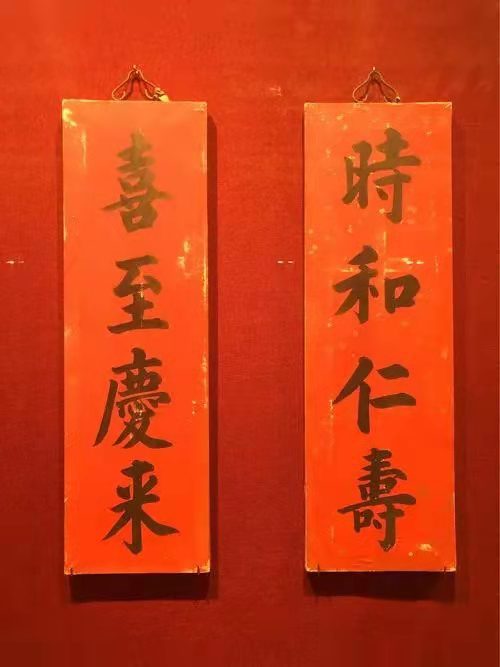 時和仁壽
喜至慶来